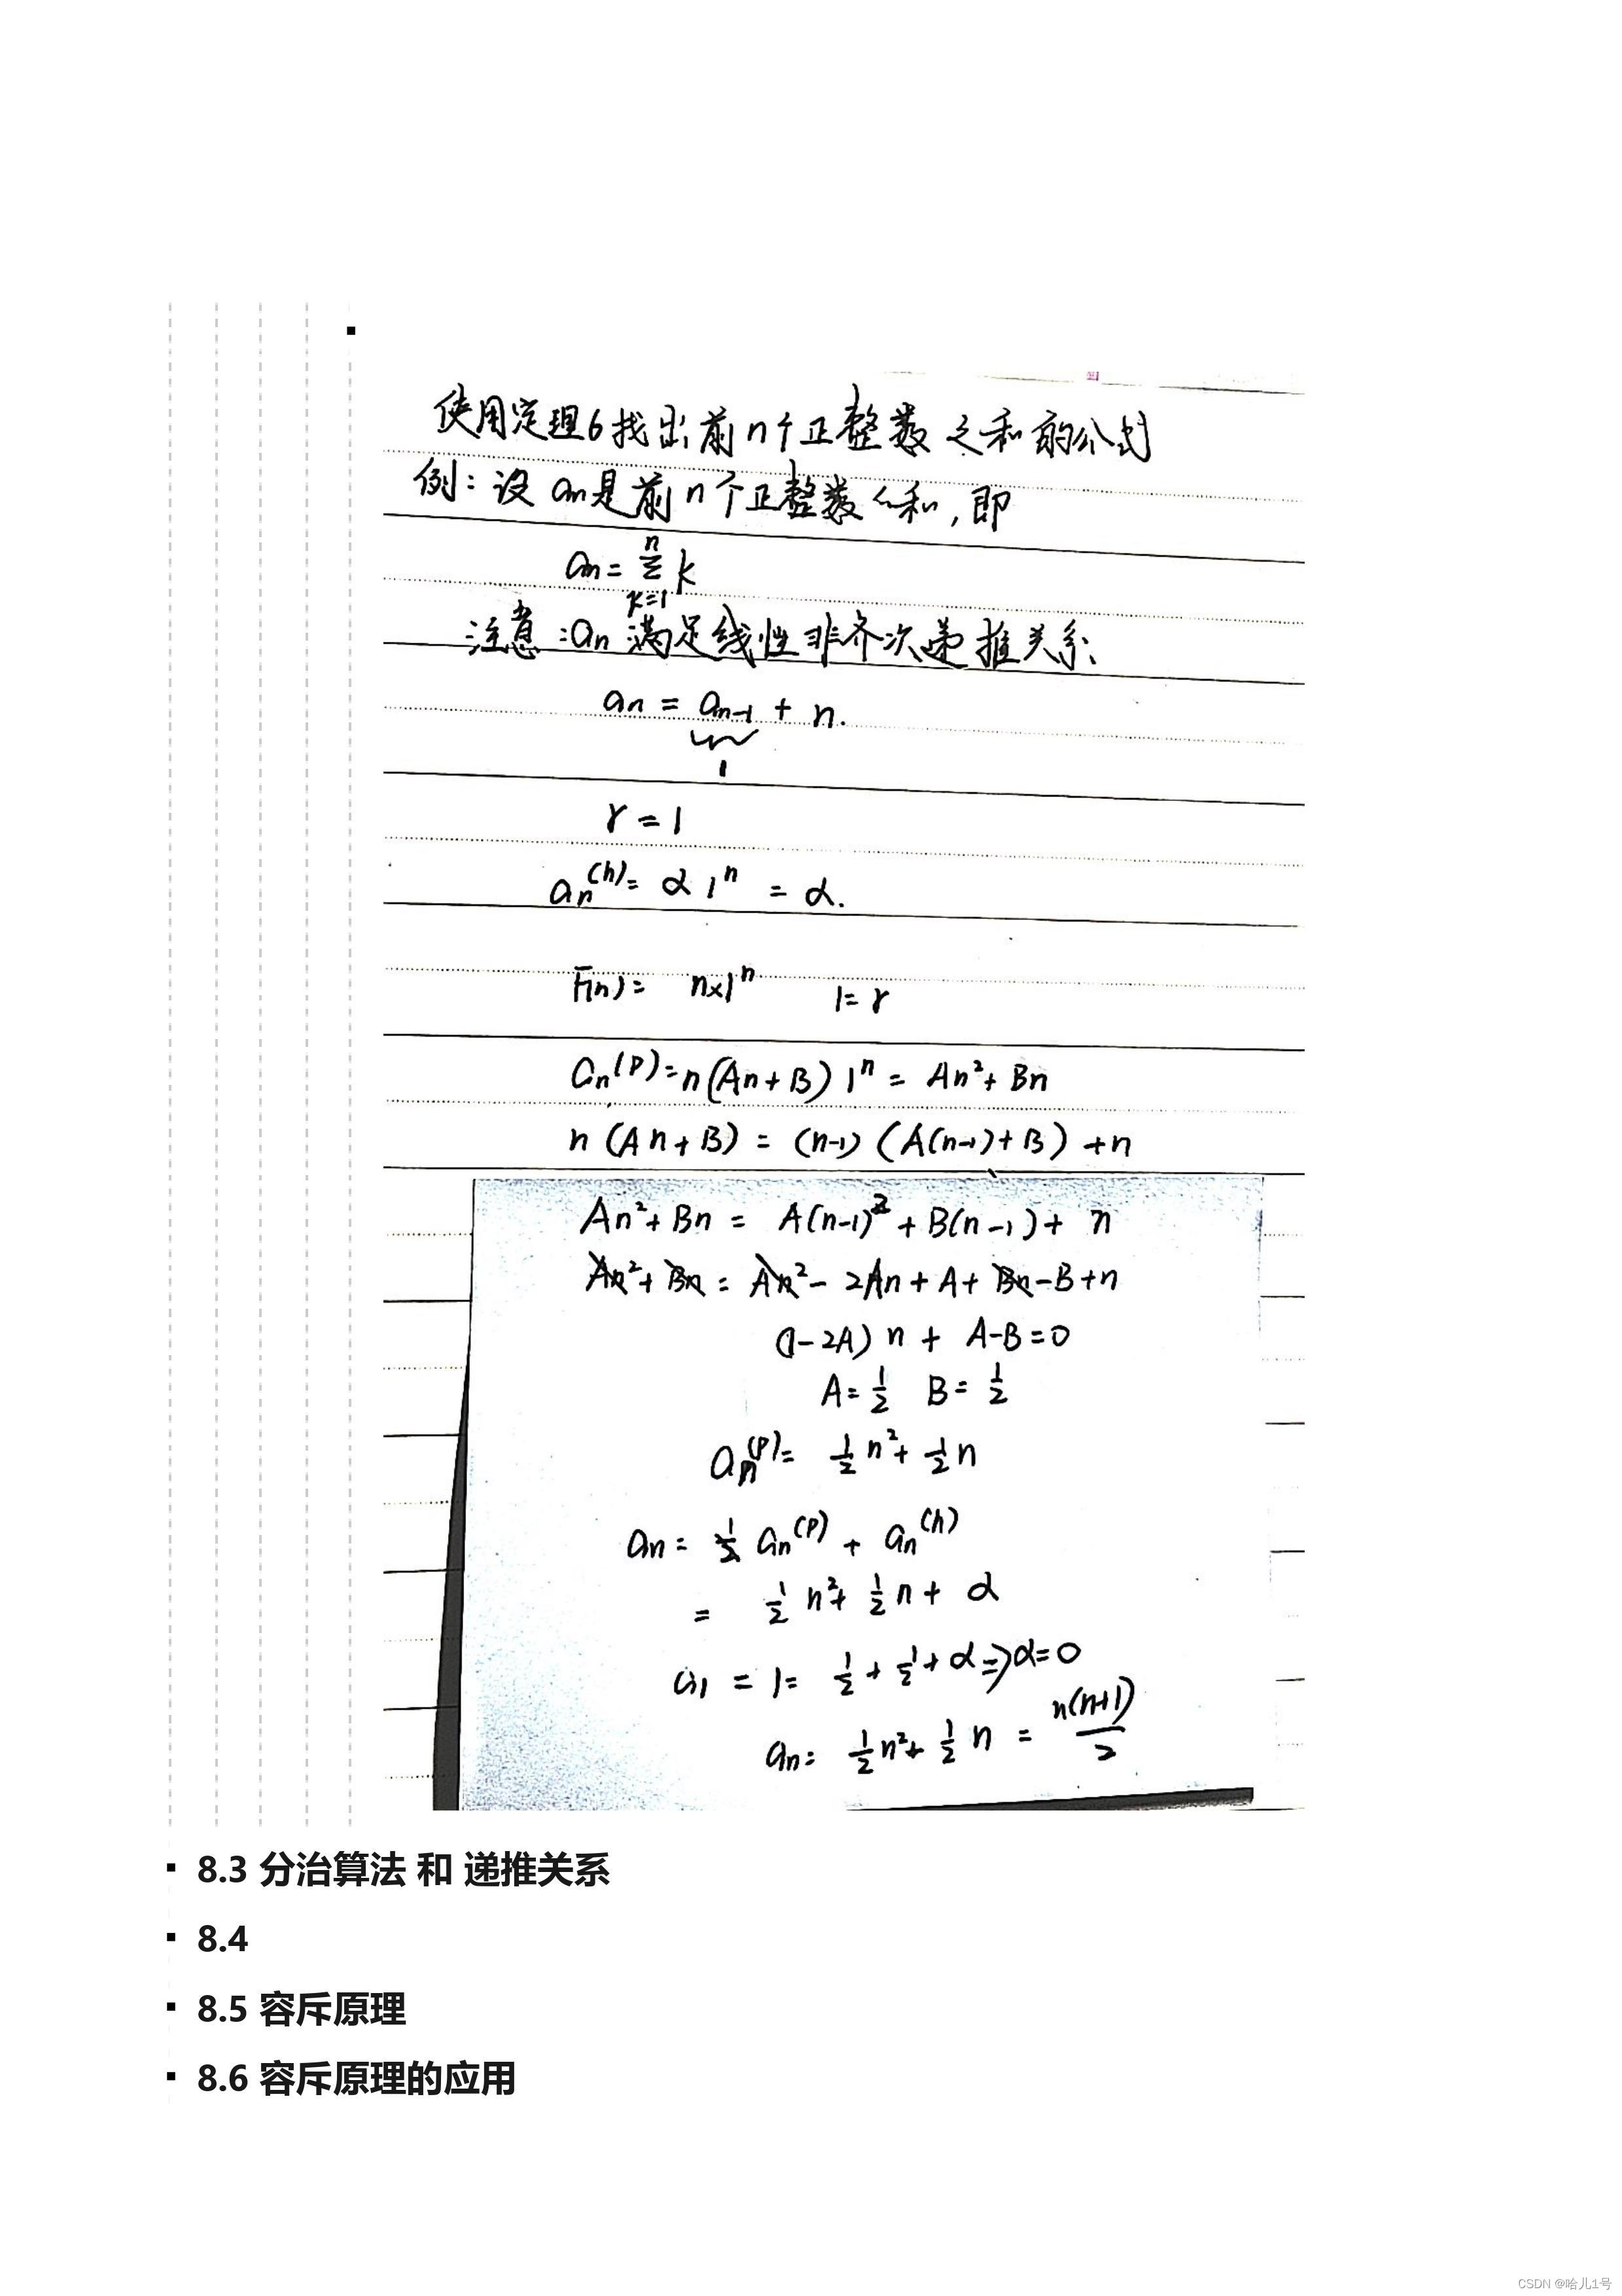 使用定理6找出前n个正整数之和的公式
例：设 an是前n个正整数之和，即
an = n Σ k=1 k
注意：an 满足线性非齐次递推关系
an = an-1 + n.
1
r = 1
an(h) = α 1^n = α.
F(n) = n×1^n 1=r
an(p) = n(An+B) 1^n = An²+Bn
n(An+B) = (n-1)(A(n-1)+B)+n
An²+Bn = A(n-1)²+B(n-1)+n
An²+Bn = An²-2An+A+Bn-B+n
(1-2A)n + A-B=0
A=1/2 B=1/2
an(p) = 1/2 n²+1/2 n
an = an(p) + an(h)
= 1/2 n²+1/2 n+α
a1 = 1 = 1/2+1/2+α⇒α=0
an = 1/2 n²+1/2 n = n(n+1)/2
8.3 分治算法 和 递推关系
8.4
8.5 容斥原理
8.6 容斥原理的应用
CSDN @哈儿1号